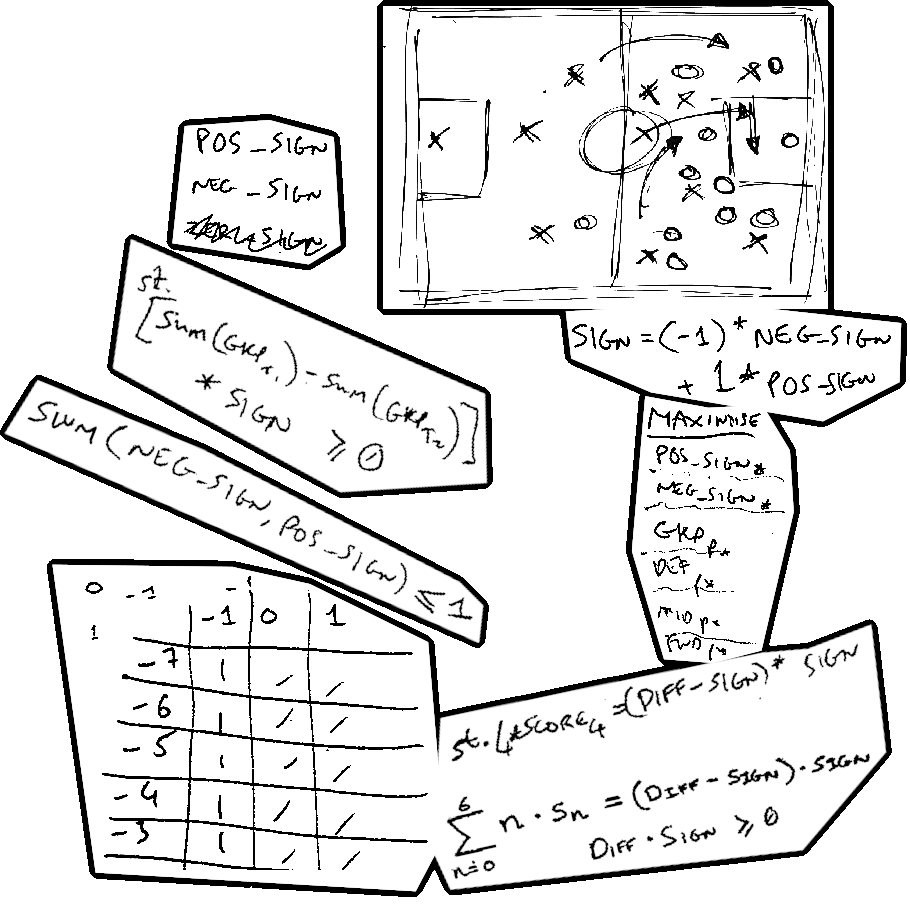 POS_SIGN
NEG_SIGN
st.
[Sum(GKP) - Sum(GKP)]
* SIGN ≥ 0
SUM(NEG_SIGN, POS_SIGN) ≤ 1
SIGN = (-1) * NEG_SIGN
+ 1 * POS_SIGN
MAXIMISE
POS_SIGN *
NEG_SIGN *
GKP P*
DEF P*
MID P*
FWD P*
0 -1
-1 0 1
1
-7 1 / /
-6 1 / /
-5 1 / /
-4 1 / /
-3 1 / /
st. 4*SCORE4 = (DIFF-SIGN) * SIGN
6
∑ n · Sn = (DIFF - SIGN) · SIGN
n=0
DIFF · SIGN ≥ 0